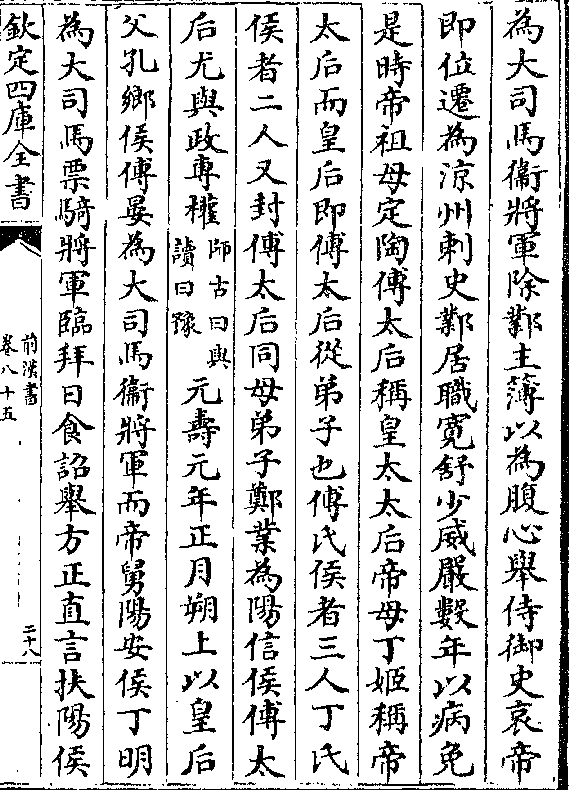 為大司馬衞將軍除鄴主簿以為腹心舉侍御史哀帝
即位遷為涼州刺史鄴居職寛舒少威嚴數年以病免
是時帝祖母定陶傅太后稱皇太太后帝母丁姬稱帝
太后而皇后即傅太后從弟子也傅氏侯者三人丁氏
侯者二人又封傅太后同母弟子鄭業為陽信侯傅太
后尤與政專權師古曰與讀曰豫元壽元年正月朔上以皇后
父孔鄉侯傅晏為大司馬衞將軍而帝舅陽安侯丁明
為大司馬票騎將軍臨拜日食詔舉方正直言扶陽侯
欽定四庫全書
前漢書
卷八十五
二十八